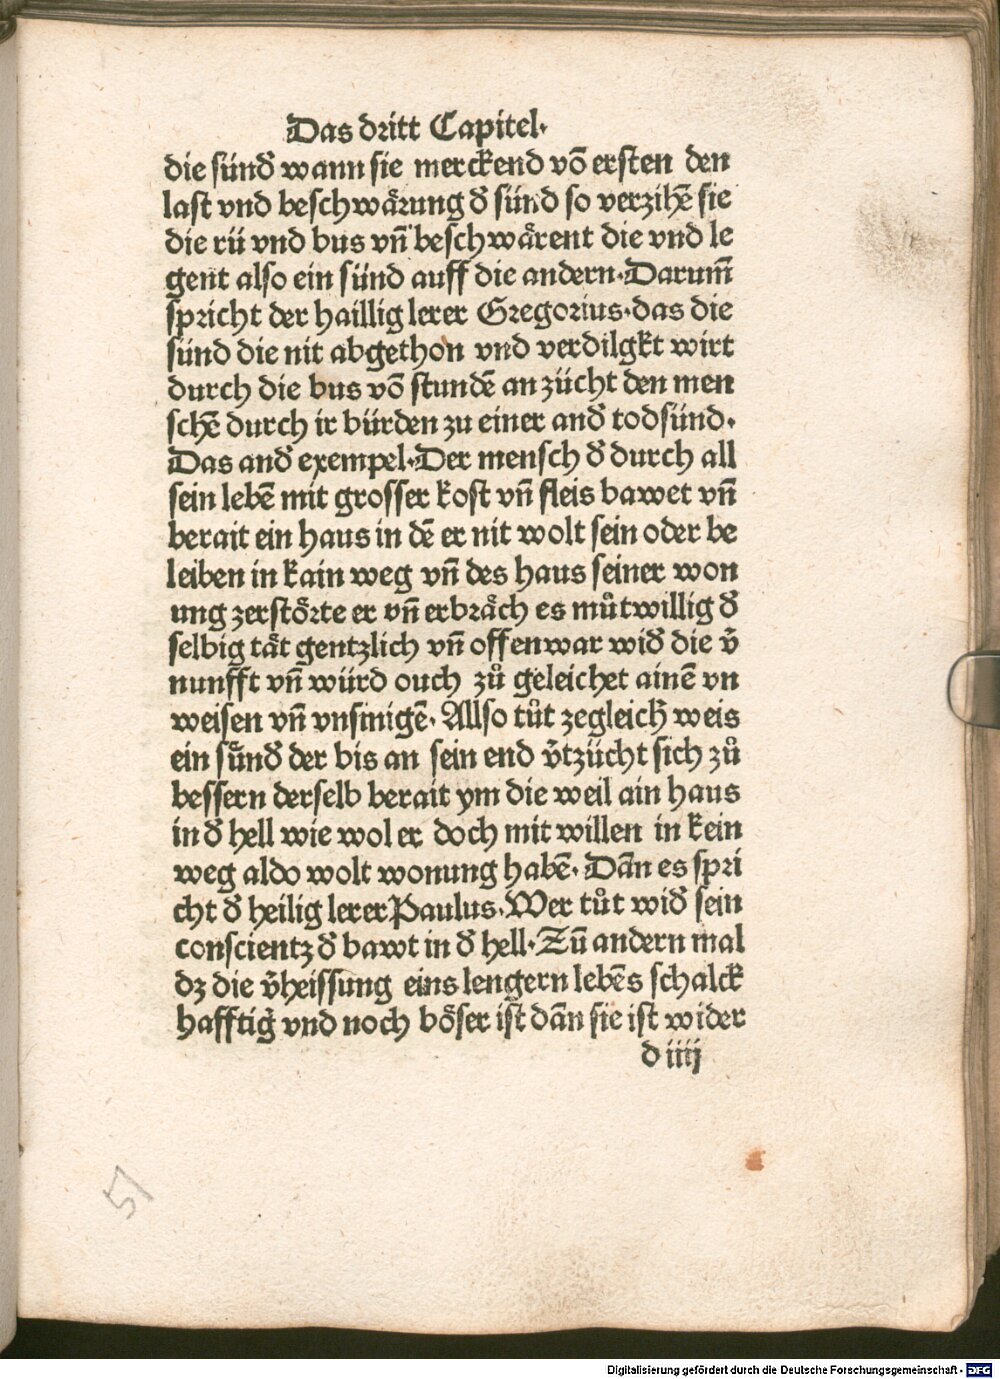 Das dritt Capitel·
die sünđ wann sie merckend võ ersten den
last vnd beschwärung đ sünd so verzihẽ sie
die rü vnd bus vñ beschwärent die vnd le
gent also ein sünd auff die andern·Darum̃
spricht der haillig lerer Gregorius·das die
sünd die nit abgethon vnd verdilgkt wirt
durch die bus võ stundẽ an zücht den men
schẽ durch ir bürden zu einer anđ todsünd·
Das anđ exempel·Der mensch đ durch all
sein lebẽ mit grosser kost vñ fleis bawet vñ
berait ein haus in dẽ er nit wolt sein oder be
leiben in kain weg vñ des haus seiner won
ung zerstörte er vñ erbräch es můtwillig đ
selbig tät gentzlich vñ offenwar wiđ die v̄
nunfft vñ würd ouch zů geleichet ainẽ vn
weisen vñ vnsinigẽ· Allso tůt zegleich weis
ein sünđ der bis an sein end v̄tzücht sich zů
bessern derselb berait ym die weil ain haus
in đ hell wie wol er doch mit willen in kein
weg aldo wolt wonung habẽ· Dãn es spri
cht đ heilig lerer Paulus·Wer tůt wiđ sein
conscientz đ bawt in đ hell·Zũ andern mal
dz die v̄heissung eins lengern lebẽs schalck
hafftig vnd noch böser ist dãn sie ist wider
d iiij
51
Digitalisierung gefördert durch die Deutsche Forschungsgemeinschaft - DFG